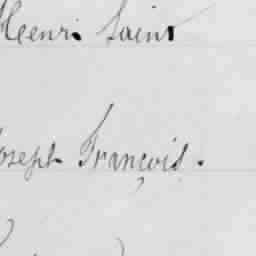 Henri Saint
Joseph François.